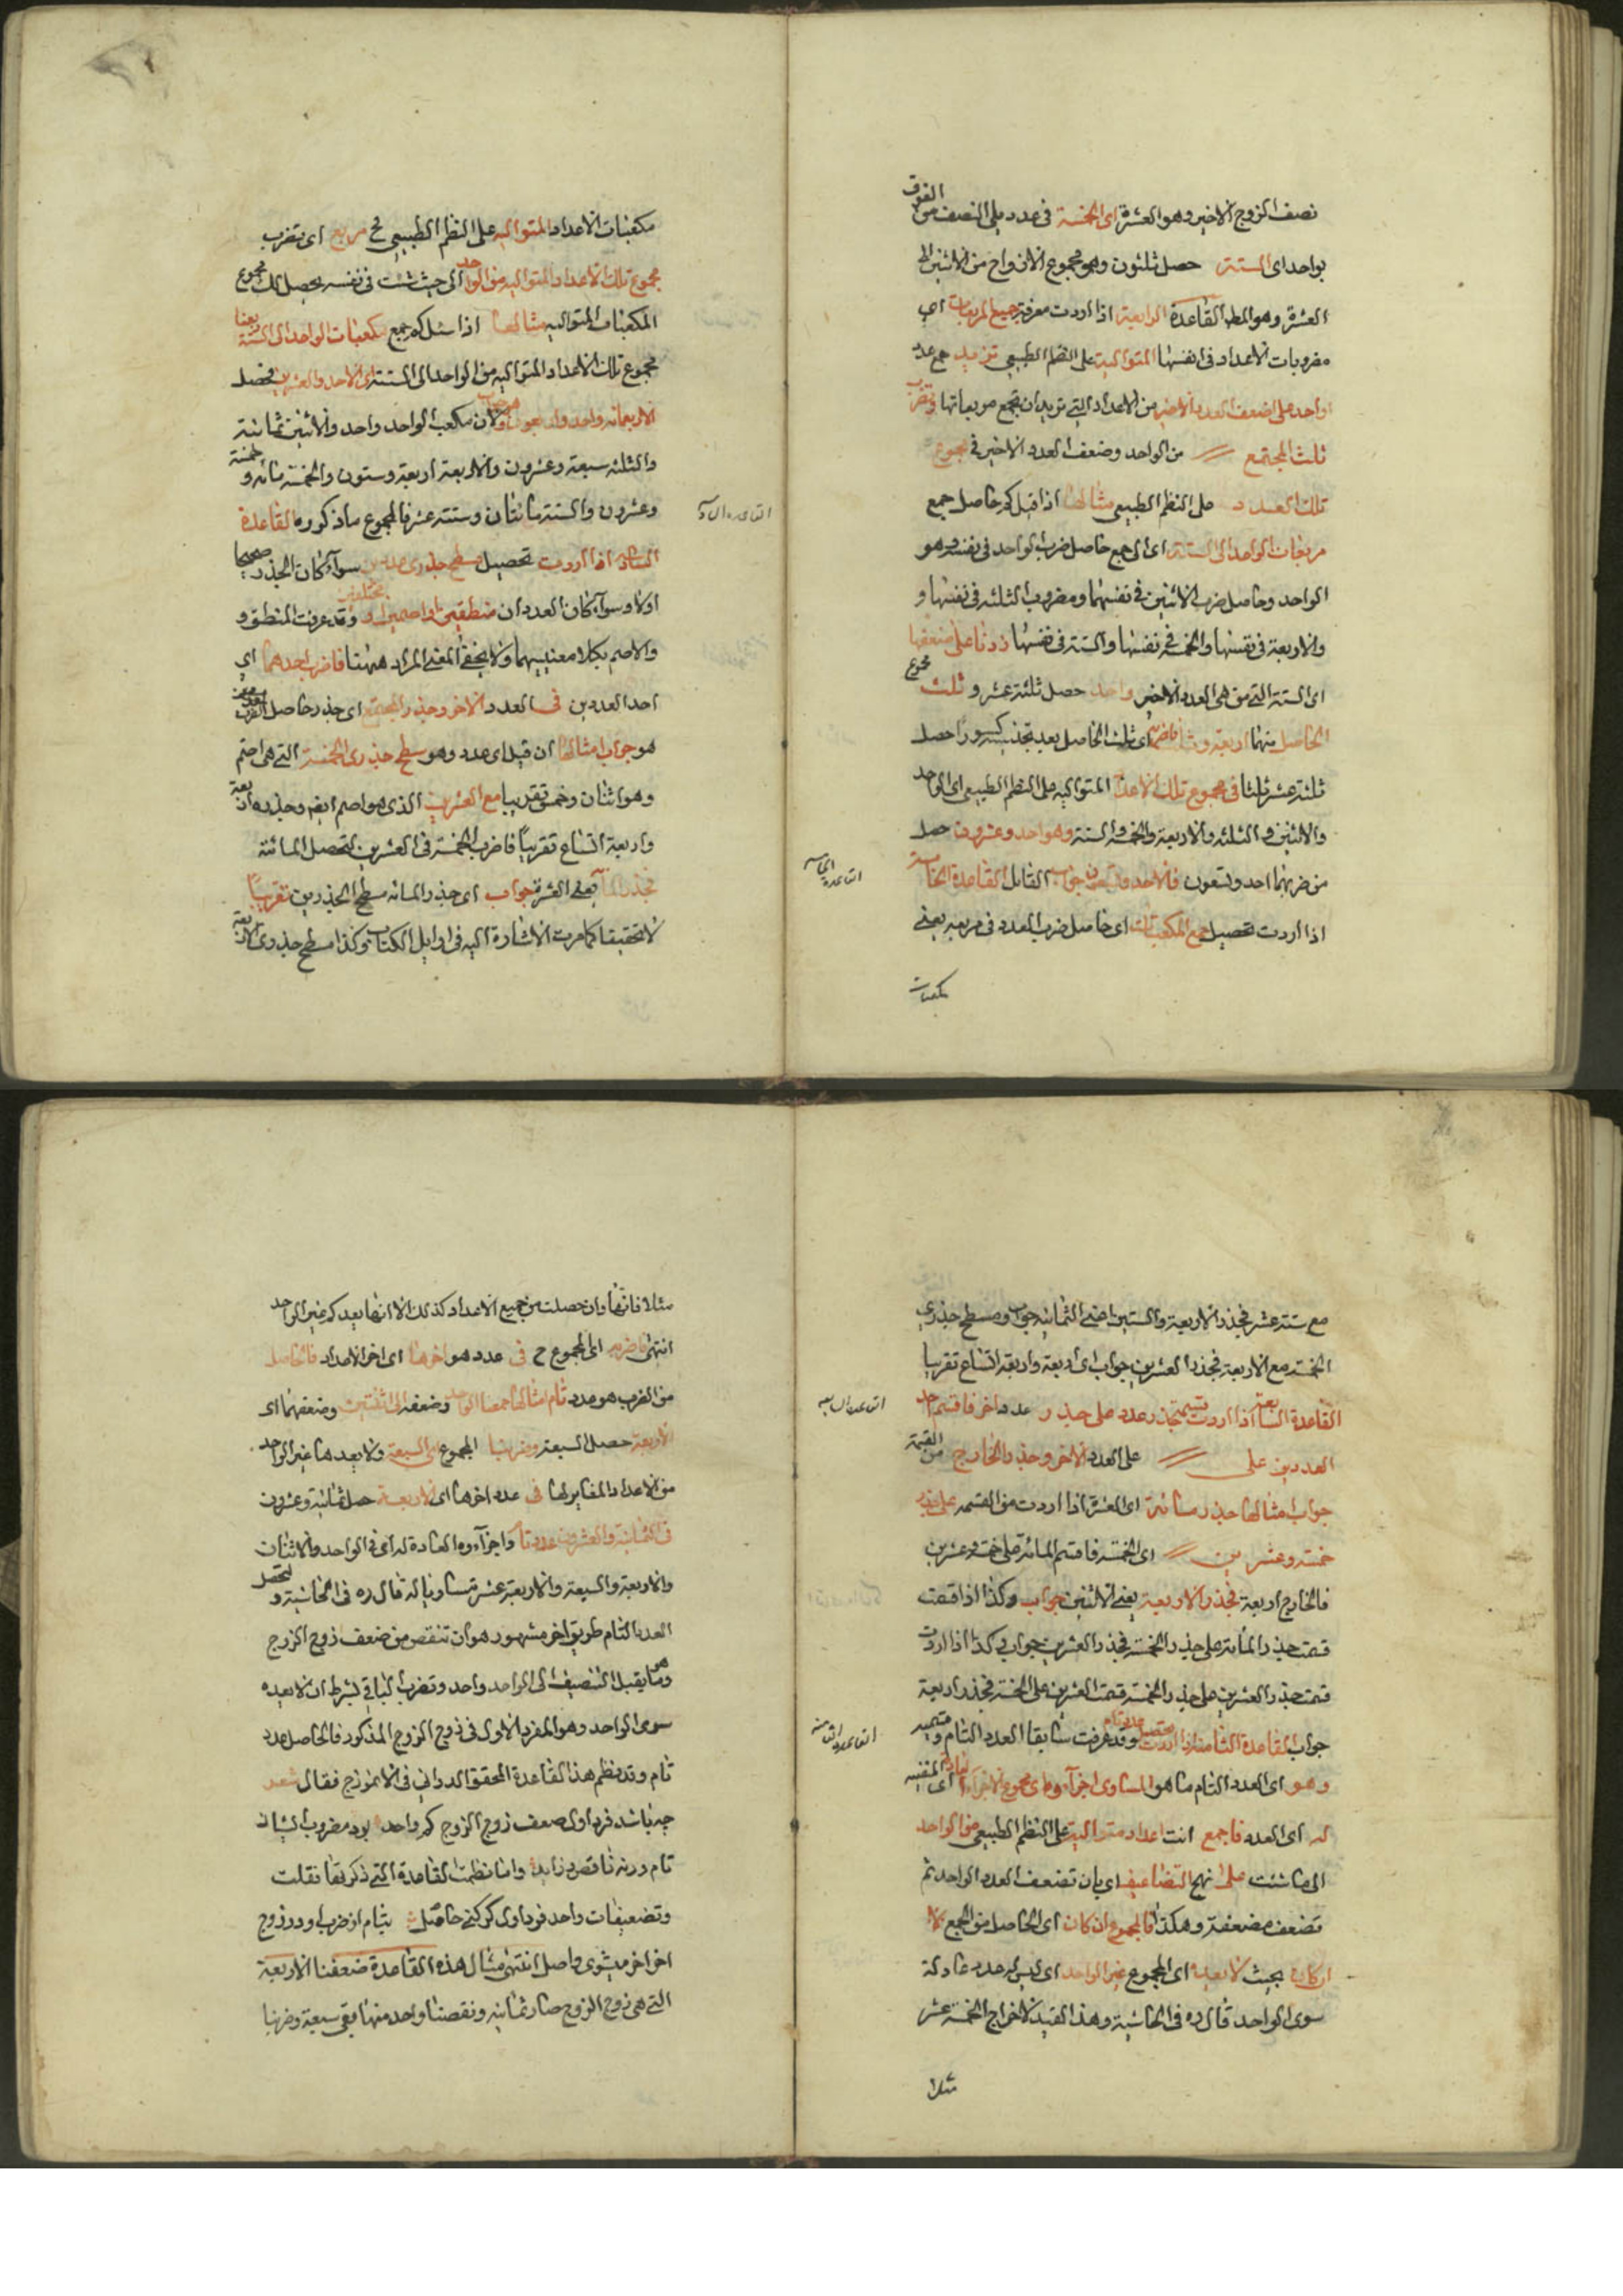 نصف الزوج الاخير وهو العشرة اى الخمسة فى عدد يلى النصف من الفوق
بواحد اى الستة حصل ثلثون وهو مجموع الازواج من الاثنين الى
العشرة وهو المط القاعدة الرابعة اذا اردت معرفة جميع المربعات اى
مضروبات الاعداد فى انفسها المتوالية على النظم الطبيعى تزيد مع عدد
واحد على ضعف العدد الاخير من الاعداد التى تريد ان تجمع مربعاتها وتضرب
ثلث المجتمع من الواحد وضعف العدد الاخير فى مجموع
تلك العدد على النظم الطبيعى مثالها اذا قيل كم حاصل جمع
مربعات الواحد الى الستة اى الى جمع حاصل ضرب الواحد فى نفسه وهو
الواحد وحاصل ضرب الاثنين فى نفسهما ومضروب الثلثة فى نفسها و
والاربعة فى نفسها والخمسة فى نفسها والستة فى نفسها زدنا على ضعفها
اى الستة التى من هى العدد الاخير واحد حصل ثلثة عشر وثلث مجموع
الحاصل منهما اربعة وثلث فاضربه اى ثلث الحاصل بعد تجنيسه كسورا حصل
ثلثة عشر ثلثا فى مجموع تلك الاعداد المتوالية على النظم الطبيعى اى الواحد
والاثنين والثلثة والاربعة والخمسة والستة وهو احد وعشرون حصل
من ضربهما احد وتسعون فالاحد وتسعون جواب القائل القاعدة الخامسة
القاعدة الخامسة
اذا اردت تحصيل جمع المكعبات اى حاصل ضرب العدد فى مربعه يعنى
مكعبات
مكعبات الاعداد المتوالية على النظم الطبيعى فح مربع اى تضرب
مجموع تلك الاعداد المتوالية من الواحد الى حيث شئت فى نفسه يحصل لك مجموع
المكعبات المتوالية مثالها اذا سئل كم جمع مكعبات الواحد الى الستة ربعنا
مجموع تلك الاعداد المتوالية من الواحد الى الستة اى الاحد والعشرين فحصل
الاربعمائة واحد واربعون هو جواب لان مكعب الواحد واحد والاثنين ثمانية
والثلثة سبعة وعشرون والاربعة اربعة وستون والخمسة مائة و خمسة
وعشرون والستة مائتان وستة عشر فالمجموع ما ذكروه القاعدة
السادسة اذا اردت تحصيل سطح جذرى عددين سواء كان الجذر صحيحا
اولا وسواء كان العددان منطقين او اصمين او مختلفين وقد عرفت المنطق و
والاصم بكلا معنييهما ولا يخفى المعنى المراد ههنا فاضرب احدهما اى
احد العددين فى العدد الاخر وجذر المجتمع اى جذر حاصل الضرب
هو جواب مثالها ان قيل اى عدد وهو سطح جذرى الخمسة التى هى اصم
وهو اثنان وخمس تقريبا مع العشرين الذى هو اصم ايضا وجذره اربعة
واربعة اتساع تقريبا فاضرب الخمسة فى العشرين لتحصل المائة
فجذر المائة يعنى العشرة جواب اى جذر المائة مسطح الجذرين تقريبا
لا تحقيقا كما مرت الاشارة اليه فى اوايل الكتاب وكذا مسطح جذرى الاربعة
مع ستة عشر فجذر الاربعة والستين اعنى الثمانية جواب ومسطح جذرى
الخمسة مع الاربعة فجذر العشرين جواب اى اربعة واربعة اتساع تقريبا
القاعدة السابعة
القاعدة السابعة اذا اردت قسمة جذر عدد على جذر عدد اخر فاقسم احد
العددين على على العدد الاخر وجذر الخارج من القسمة
جواب مثالها جذر مائة اى العشرة اذا اردت من القسمة على جذر
خمسة وعشرين اى الخمسة فاقسم المائة على خمسة وعشرين
فالخارج اربعة فجذر الاربعة يعنى الاثنين جواب وكذا اذا قسمت
قسمت جذر المائة على جذر الخمسة فجذر العشرين جواب وكذا اذا اردت
قسمت جذر العشرين على جذر الخمسة قسمت العشرين على الخمسة فجذر اربعة
القاعدة الثامنة
جواب القاعدة الثامنة اذا اردت تحصيل عدد تام وقد عرفت سابقا العدد التام و
وهو اى العدد التام ما هو المساوى اجزاؤه اى مجموع الاجزاء العادة اى المفنية
له اى العدد فاجمع انت اعداد متوالية على النظم الطبيعى من الواحد
الى ما شئت على نهج التضاعيف اى بان تضعف العدد الواحد ثم
تضعف مضعفه وهكذا فالمجموع ان كان اى الحاصل من الجمع لا
ان كان بحيث لا يعده اى المجموع غير الواحد اى ليس له عدد عاد له
سوى الواحد قال ره فى الحاشية وهذا القيد لاخراج الخمسة عشر
مثلا
مثلا فانها وان حصلت من جميع الاعداد كذلك الا انها يعد كم غير الواحد
انتهى فاضربه اى المجموع ح فى عدد هو اخرها اى اخر الاعداد فالحاصل
من الضرب هو عدد تام مثالها جمعنا الواحد وضعفه اى الاثنين وضعفهما اى
الاربعة حصل السبعة وضربنا المجموع اى السبعة ولا يعدها غير الواحد
من الاعداد المغايرلها فى عدد اخرها اى الاربعة حصل ثمانية وعشرون
فى الثمانية والعشرون عدد تام واجزاؤه العادة له اى فى الواحد والاثنان
والاربعة والسبعة والاربعة عشر متساويا له قال ره فى الحاشية و لتحصيل
العدد التام طريق اخر مشهور هو ان تنقص من ضعف زوج الزوج
وهو ما يقبل التنصيف الى الواحد واحد وتضرب الباقى بشرط ان لا يعده
سوى الواحد وهو المفرد الاول فى زوج الزوج المذكور فالحاصل عدد
تام وقد نظم هذا القاعدة المحقق الدوانى فى الانموذج فقال شعر
چه باشد فرد اول ضعف زوج الزوج كم واحد بود مضروب ايشان
تام ورنه ناقص و زايد وانا نظمت القاعدة التى ذكرتها نقلت
وتضعيفات واحد فرد اول كر كنى حاصل بتام از ضرب او در زوج
اخر اخر ميشوى واصل انتهى مثال هذه القاعدة ضعفنا الاربعة
التى هى زوج الزوج صار ثمانية ونقصنا واحد منها بقى سبعة وضربنا